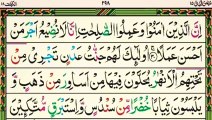 ٢٩٨
اِنَّ الَّذِيْنَ اٰمَنُوْا وَعَمِلُوا الصّٰلِحٰتِ اِنَّا لَا نُضِيْعُ اَجْرَ مَنْ
اَحْسَنَ عَمَلًا اُولٰٓئِكَ لَهُمْ جَنّٰتُ عَدْنٍ تَجْرِيْ مِنْ
تَحْتِهِمُ الْاَنْهٰرُ يُحَلَّوْنَ فِيْهَا مِنْ اَسَاوِرَ مِنْ ذَهَبٍ وَّ
يَلْبَسُوْنَ ثِيَابًا خُضْرًا مِّنْ سُنْدُسٍ وَّاِسْتَبْرَقٍ مُّتَّكِئِيْنَ